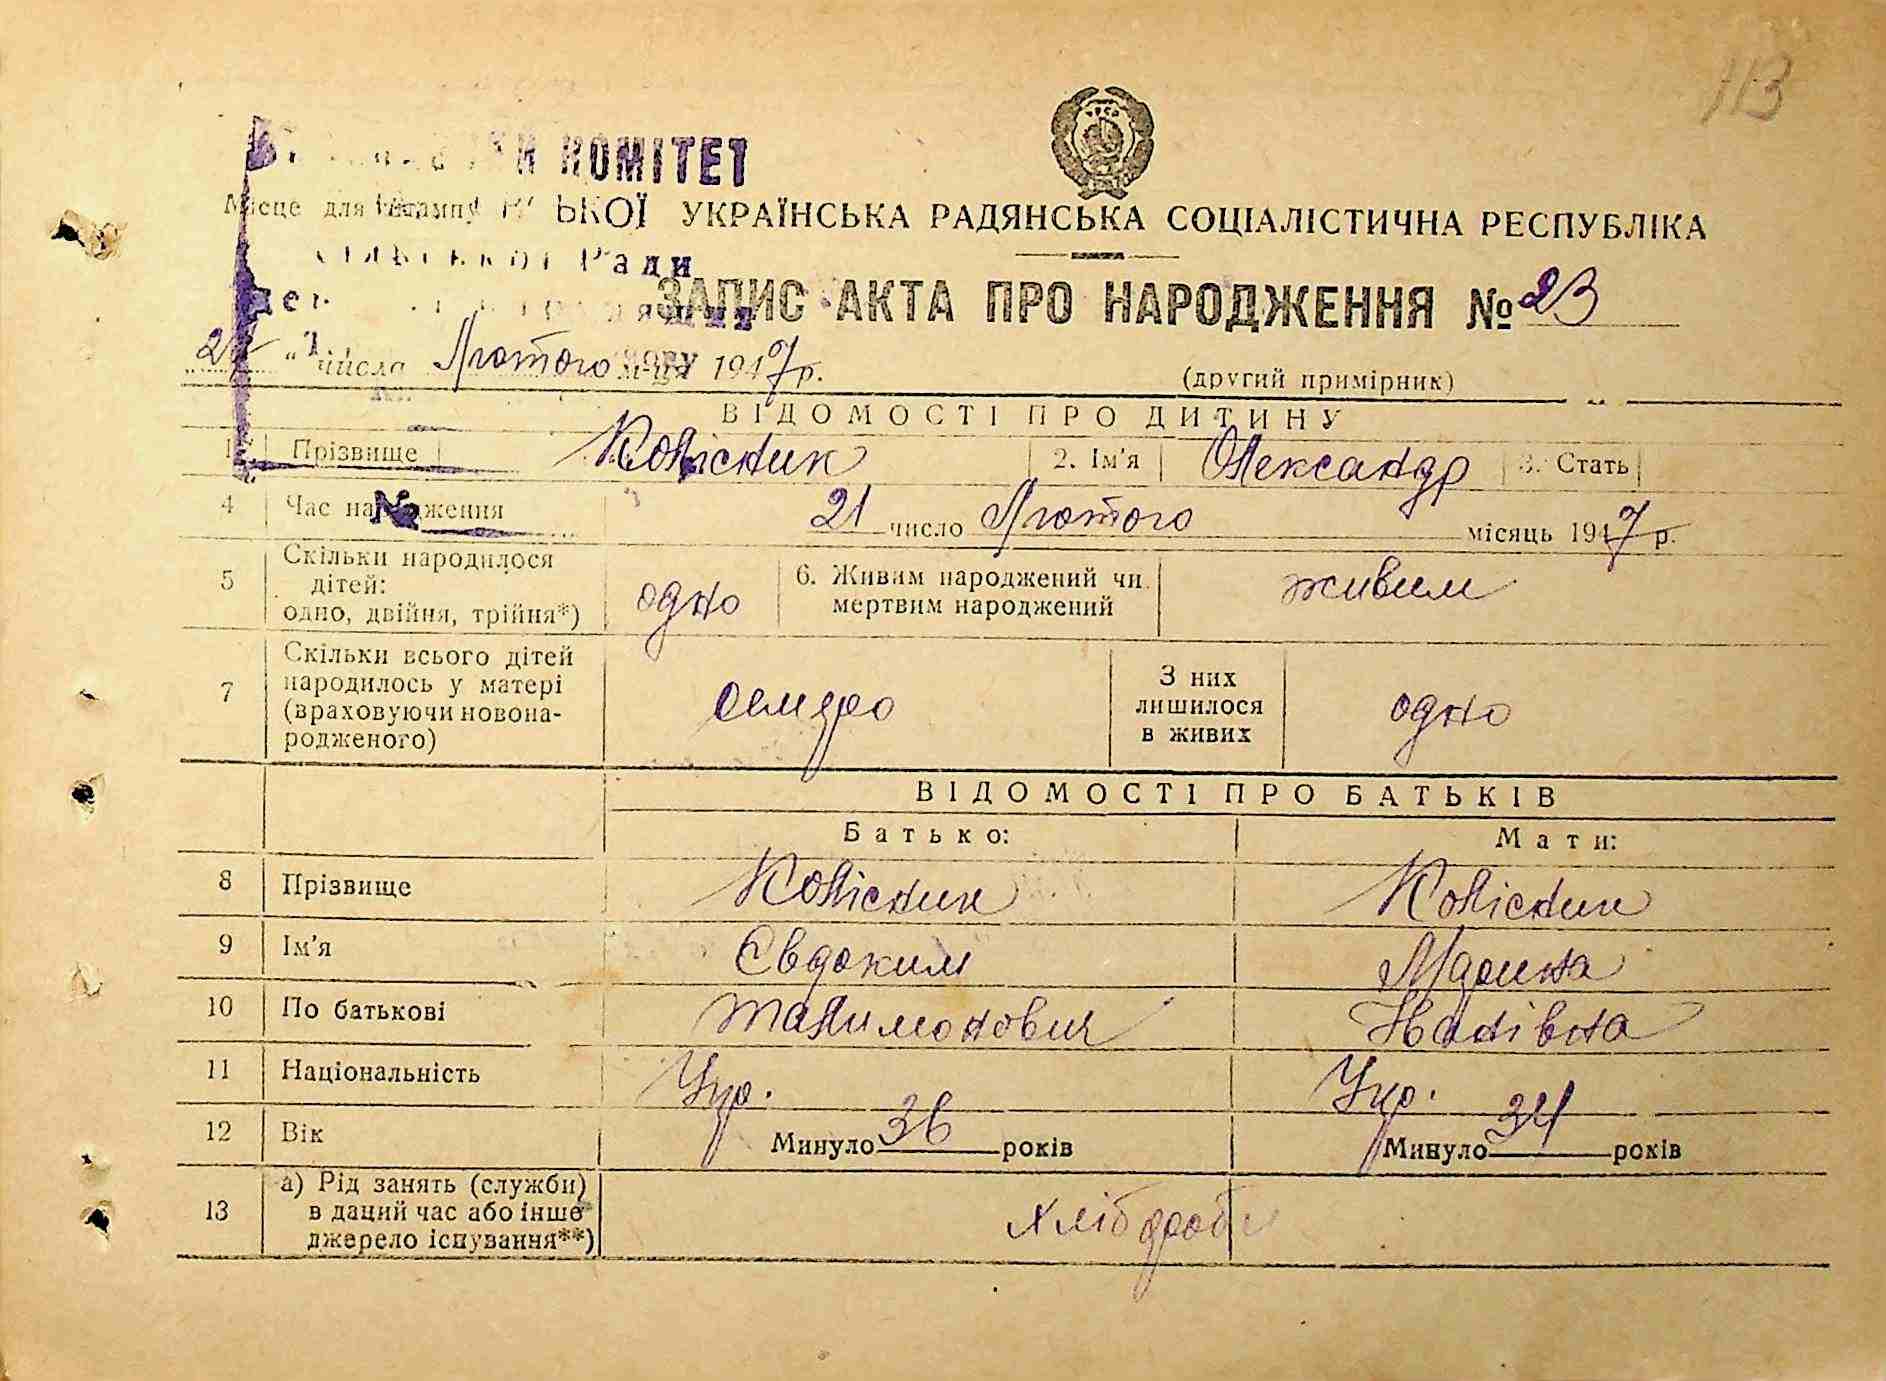 113
КОМІТЕТ
Місце для штампу
ЬКОЇ
УКРАЇНСЬКА РАДЯНСЬКА СОЦІАЛІСТИЧНА РЕСПУБЛІКА
Ради
ЗАПИС АКТА ПРО НАРОДЖЕННЯ № 23
числа Лютого м-ця 1947 р.
(другий примірник)
ВІДОМОСТІ ПРО ДИТИНУ
1 Прізвище Колісник 2. Ім'я Олександр 3. Стать
4 Час народження 21 число Лютого місяць 1947 р.
5 Скільки народилося дітей: одно, двійня, трійня*) одно 6. Живим народжений чи мертвим народжений живим
7 Скільки всього дітей народилось у матері (враховуючи новонародженого) семеро З них лишилося в живих одно
ВІДОМОСТІ ПРО БАТЬКІВ
Батько: Мати:
8 Прізвище Колісник Колісник
9 Ім'я Євдоким Марина
10 По батькові
11 Національність Укр. Укр.
12 Вік Минуло 36 років Минуло 34 років
13 а) Рід занять (служби) в даний час або інше джерело існування**) хлібороби